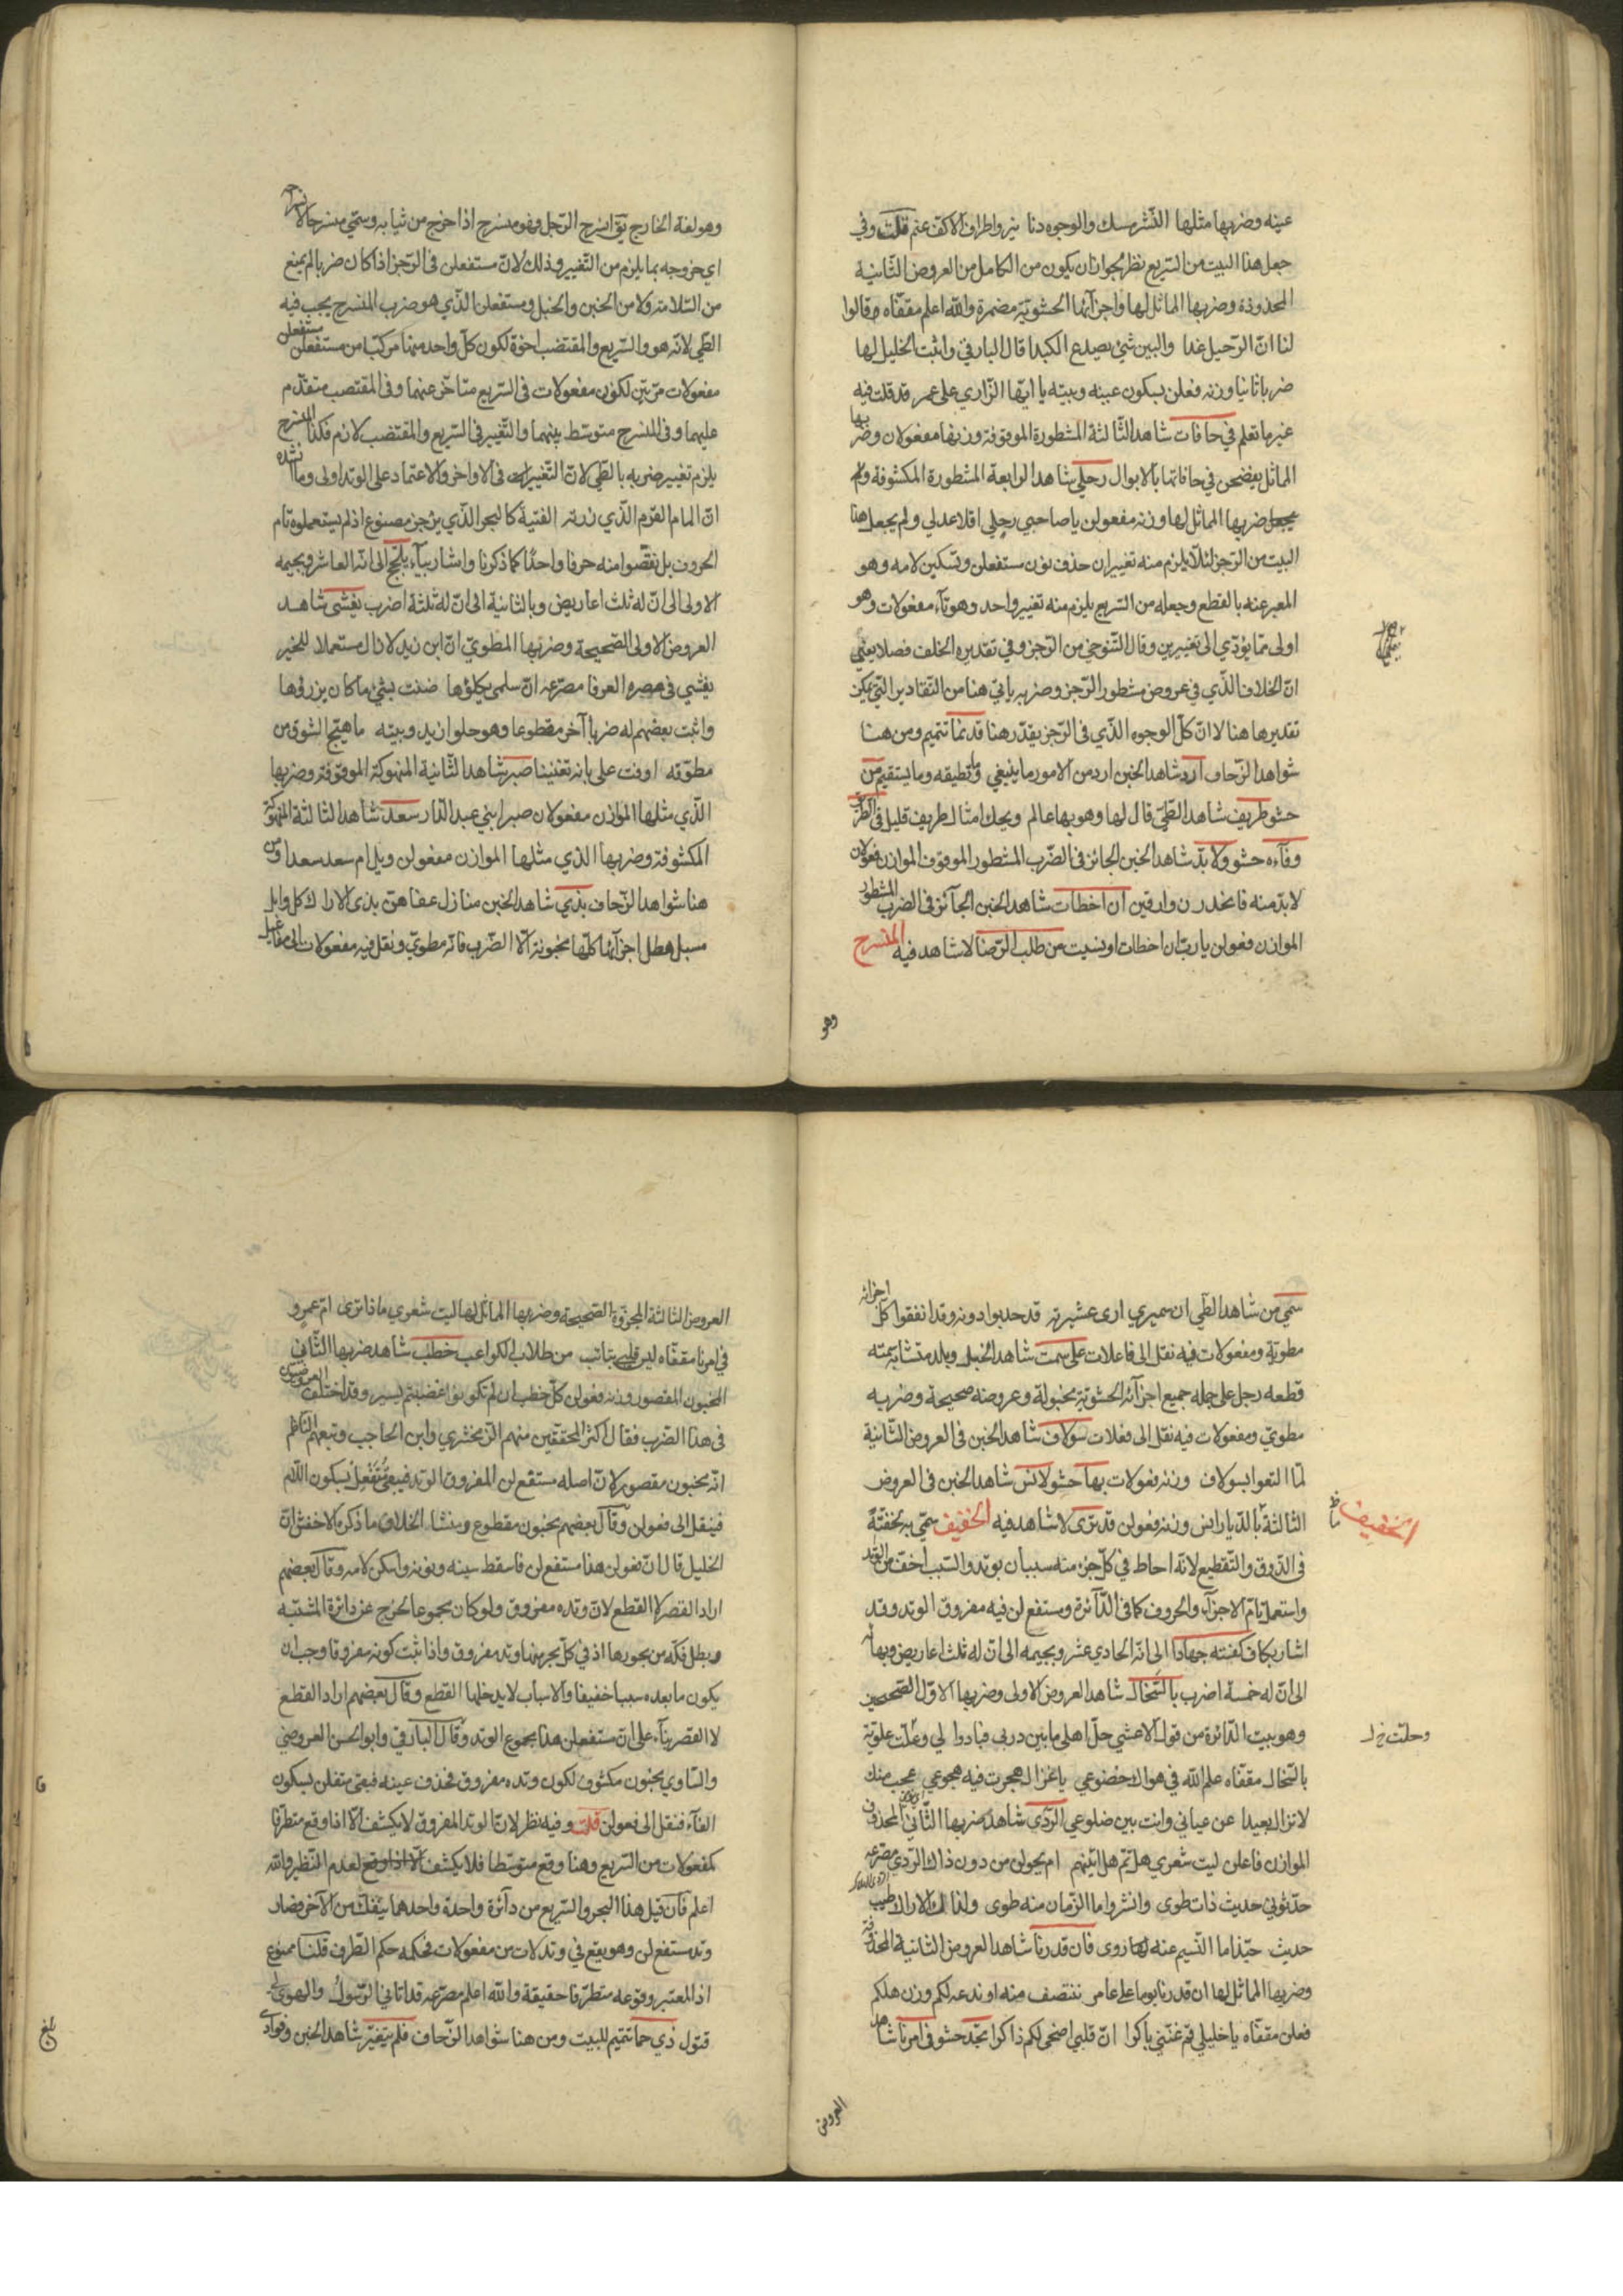 عينه وضربها مثلها النشر مسك والوجوه دنا نير واطراف الاكف عنم قلت وفي
جعل هذا البيت من السريع نظر لجواز ان يكون من الكامل من العروض الثانية
المحذوذة وضربها المماثل لها واجزآئها الحشوية مضمرة والله اعلم مقفاه وقالوا
لنا ان الرحيل غدا والبين شئ يصدع الكبدا قال البارقي واثبت الخليل لها
ضربا ثانيا وزنه فعلن بسكون عينه وبيته يا ايها الزاري على عمر قد قلت فيه
غير ما تعلم في حافات شاهد الثالثة المشطورة الموقوفة وزنها مفعولان وضربها
المماثل ينضحن في حافاتها بالابوال رحلي شاهد الرابعة المشطورة المكشوفة ولم
يجعل ضربها المماثل لها وزنه مفعولن يا صاحبي رحلي اقلا عذلي ولم يجعل هذا
البيت من الرجز لئلا يلزم منه تغييران حذف نون مستفعلن وتسكين لامه وهو
المعبر عنه بالقطع وجعله من السريع يلزم منه تغيير واحد وهو تآء مفعولات وهو
اولى مما يؤدي الى تغييرين وقال التنوخي من الرجز وفي تقديره الخلف فصلا يعني
ان الخلاف الذي في عروض مشطور الرجز وضربه ياتي هنا من التقادير التي يمكن
تقديرها هنا لا ان كل الوجوه الذي في الرجز يقدر هنا قد نما تتميم ومن هنا
شواهد الزحاف ارد شاهد الخبن ارد من الامور ما ينبغي وما تطيقه وما يستقيم من
حشو طريف شاهد الطي قال لها وهو بها عالم ويحك امثال طريف قليل في الطرق
وفآءه حشو ولا بد شاهد الخبن الجائز في الضرب المشطور الموقوف الموازن فعولان
لا بد منه فانحدرن وارقين ان اخطات شاهد الخبن الجآئز في الضرب المشطور
الموازن فعولن يا رب ان اخطات او نسيت من طلب الرضا لا شاهد فيه المنسرح
وهو
وهو لغة الخارج يق انسرح الرجل فهو منسرح اذا خرج من ثيابه وسمي منسرحا لانسراحه
اي خروجه بما يلزم من التغيير وذلك لان مستفعلن في الرجز اذا كان ضربا لم يمنع
من السلامة ولا من الخبن والخبل ومستفعلن الذي هو ضرب المنسرح يجب فيه
الطي لانه هو والسريع والمقتضب اخوة لكون كل واحد منها مركبا من مستفعلن مستفعلن
مفعولات مرتين لكون مفعولات في السريع متاخر عنهما وفي المقتضب متقدم
عليهما وفي المنسرح متوسط بينهما والتغيير في السريع والمقتضب لازم فكذا المنسرح
يلزم تغيير ضربه بالطي لان التغييرات في الاواخر والاعتماد على الوتد اولى وما انشده
ان المام القرم الذي زرته الفتية كالبحر الذي يزجر مصنوع اذ لم يستعملوه تام
الحروف بل نقصوا منه حرفا واحدا كما ذكرنا واشار بيآء يلج الى انه العاشر وبجيمه
الاولى الى ان له ثلث اعاريض وبالثانية الى ان له ثلثة اضرب يفشى شاهد
العروض الاولى الصحيحة وضربها المطوي ان ابن زيد لا زال مستعملا للخير
يفشي في مصره العرفا مصرعه ان سلمى يكلؤها ضنت بشئ ما كان يرزؤها
واثبت بعضهم له ضربا آخر مقطوعا وهو حلو ان يد وبيته ما هيج الشوق من
مطوقة اوفت على بانه تغنينا صبر شاهد الثانية المنهوكة الموقوفة وضربها
الذي مثلها الموازن مفعولان صبرا بني عبد الدار سعد شاهد الثالثة المنهوكة
المكشوفة وضربها الذي مثلها الموازن مفعولن ويل ام سعد سعدا ومن
هنا شواهد الزحاف بذي شاهد الخبن منازل عفاهن بذي الاراك كل وابل
مسبل هطل اجزآئها كلها مخبونة الا الضرب فانه مطوي ونقل فيه مفعولات الى مفاعيل
سمي من شاهد الطي ان سميري ارى عشيرته قد حدبوا دونه وقد انفقوا كل اجزائه
مطوية ومفعولات فيه نقل الى فاعلات على سمت شاهد الخبل وبلد متشابه سمته
قطعه رجل على جمله جميع اجزآئه الحشوية مخبولة وعروضه صحيحة وضربه
مطوي ومفعولات فيه نقل الى فعلات سولاف شاهد الخبن في العروض الثانية
لما التقوا بسولاف وزنه فعولات بها حشو لانس شاهد الخبن في العروض
الثالثة بالديار انس وزنه فعولن قد ترى لا شاهد فيه الخفيف سمي به لخفته
في الذوق والتقطيع لانه احاط في كل جزء منه سببان بوتد والسبب اخف من الوتد
واستعمل تام الاجزآء والحروف كما في الدآئرة ومستفع لن فيه مفروق الوتد وقد
اشار بكاف كفيته جهادا الى انه الحادي عشر وبجيمه الى ان له ثلث اعاريض وبهائه
الى ان له خمسة اضرب بالسخال شاهد العروض الاولى وضربها الاول الصحيحين
وهو بيت الدائرة من قول الاعشى حل اهلي ما بين درنى فبادوا لي وحلت علوية
بالسخال مقفاه علم الله في هواك خضوعي يا غزال هجرت فيه هجوعي عجب منك
لا تزال بعيدا عن عياني وانت بين ضلوعي الردي شاهد ضربها الثاني المحذوف
الموازن فاعلن ليت شعري هل ثم هل اتينهم ام يحولن من دون ذاك الردي مصرعه
حدثوني حديث ذات طوى وانشروا ما الزمان منه طوى ولذاك الاراك طيب
حديث حبذا ما النسيم عنه روى فان قدرنا شاهد العروض الثانية المحذوفة
وضربها المماثل لها ان قدرنا يوما على عامر ننتصف منه او ندعه لكم وزن هلكم
فعلن مقفاه يا خليلي قم غنني باكرا ان قلبي اضحى لكم ذاكرا بجد حشو في امرنا شاهد
الخفيف
وحلت خ ل
العروض
العروض الثالثة المجزوة الصحيحة وضربها المماثل لها ليت شعري ماذا ترى ام عمرو
في امرنا مقفاه ليس قلبي بتائب من طلاب الكواعب خطب شاهد ضربها الثاني
المخبون المقصور وزنه فعولن كل خطب ان لم تكونوا غضبتم يسير وقد اختلف العروضيون
في هذا الضرب فقال اكثر المحققين منهم الزمخشري وابن الحاجب وتبعهم الناظم
انه مخبون مقصور لان اصله مستفع لن المفروق الوتد فيبقى متفعل بسكون اللام
فينقل الى فعولن وقال بعضهم مخبون مقطوع ومنشا الخلاف ما ذكره الاخفش ان
الخليل قال ان فعولن هذا مستفع لن فاسقط سينه ونونه واسكن لامه وقال بعضهم
اراد القصر لا القطع لان وتده مفروق ولو كان مجموعا لخرج عن دائرة المشتبه
وبطل فكه من بحورها اذ في كل بحر منها وتد مفروق واذا ثبت كونه مفروقا وجب ان
يكون ما بعده سببا خفيفا والاسباب لا يدخلها القطع وقال بعضهم اراد القطع
لا القصر بنآء على ان مستفعلن هذا مجموع الوتد وقال البارقي وابو الحسن العروضي
والساوي مخبون مكشوف لكون وتده مفروق فحذف عينه فبقي متفلن بسكون
الفآء فنقل الى فعولن قلت وفيه نظر لان الوتد المفروق لا يكشف الا اذا وقع متطرفا
كمفعولات من السريع وهنا وقع متوسطا فلا يكشف لعدم النظير والله
اعلم فان قيل هذا البحر والسريع من دآئرة واحدة واحدهما يتفك من الآخر فصار
وتد مستفع لن وهو يقع في وتد لات من مفعولات فحكمه حكم الطرف قلنا ممنوع
اذ المعتبر وقوعه متطرفا حقيقة والله اعلم مصرعه قد اتاني الرسول والهوى لي
قتول ذي حما تتميم للبيت ومن هنا شواهد الزحاف فلم يتغير شاهد الخبن وفوادي
بلغ